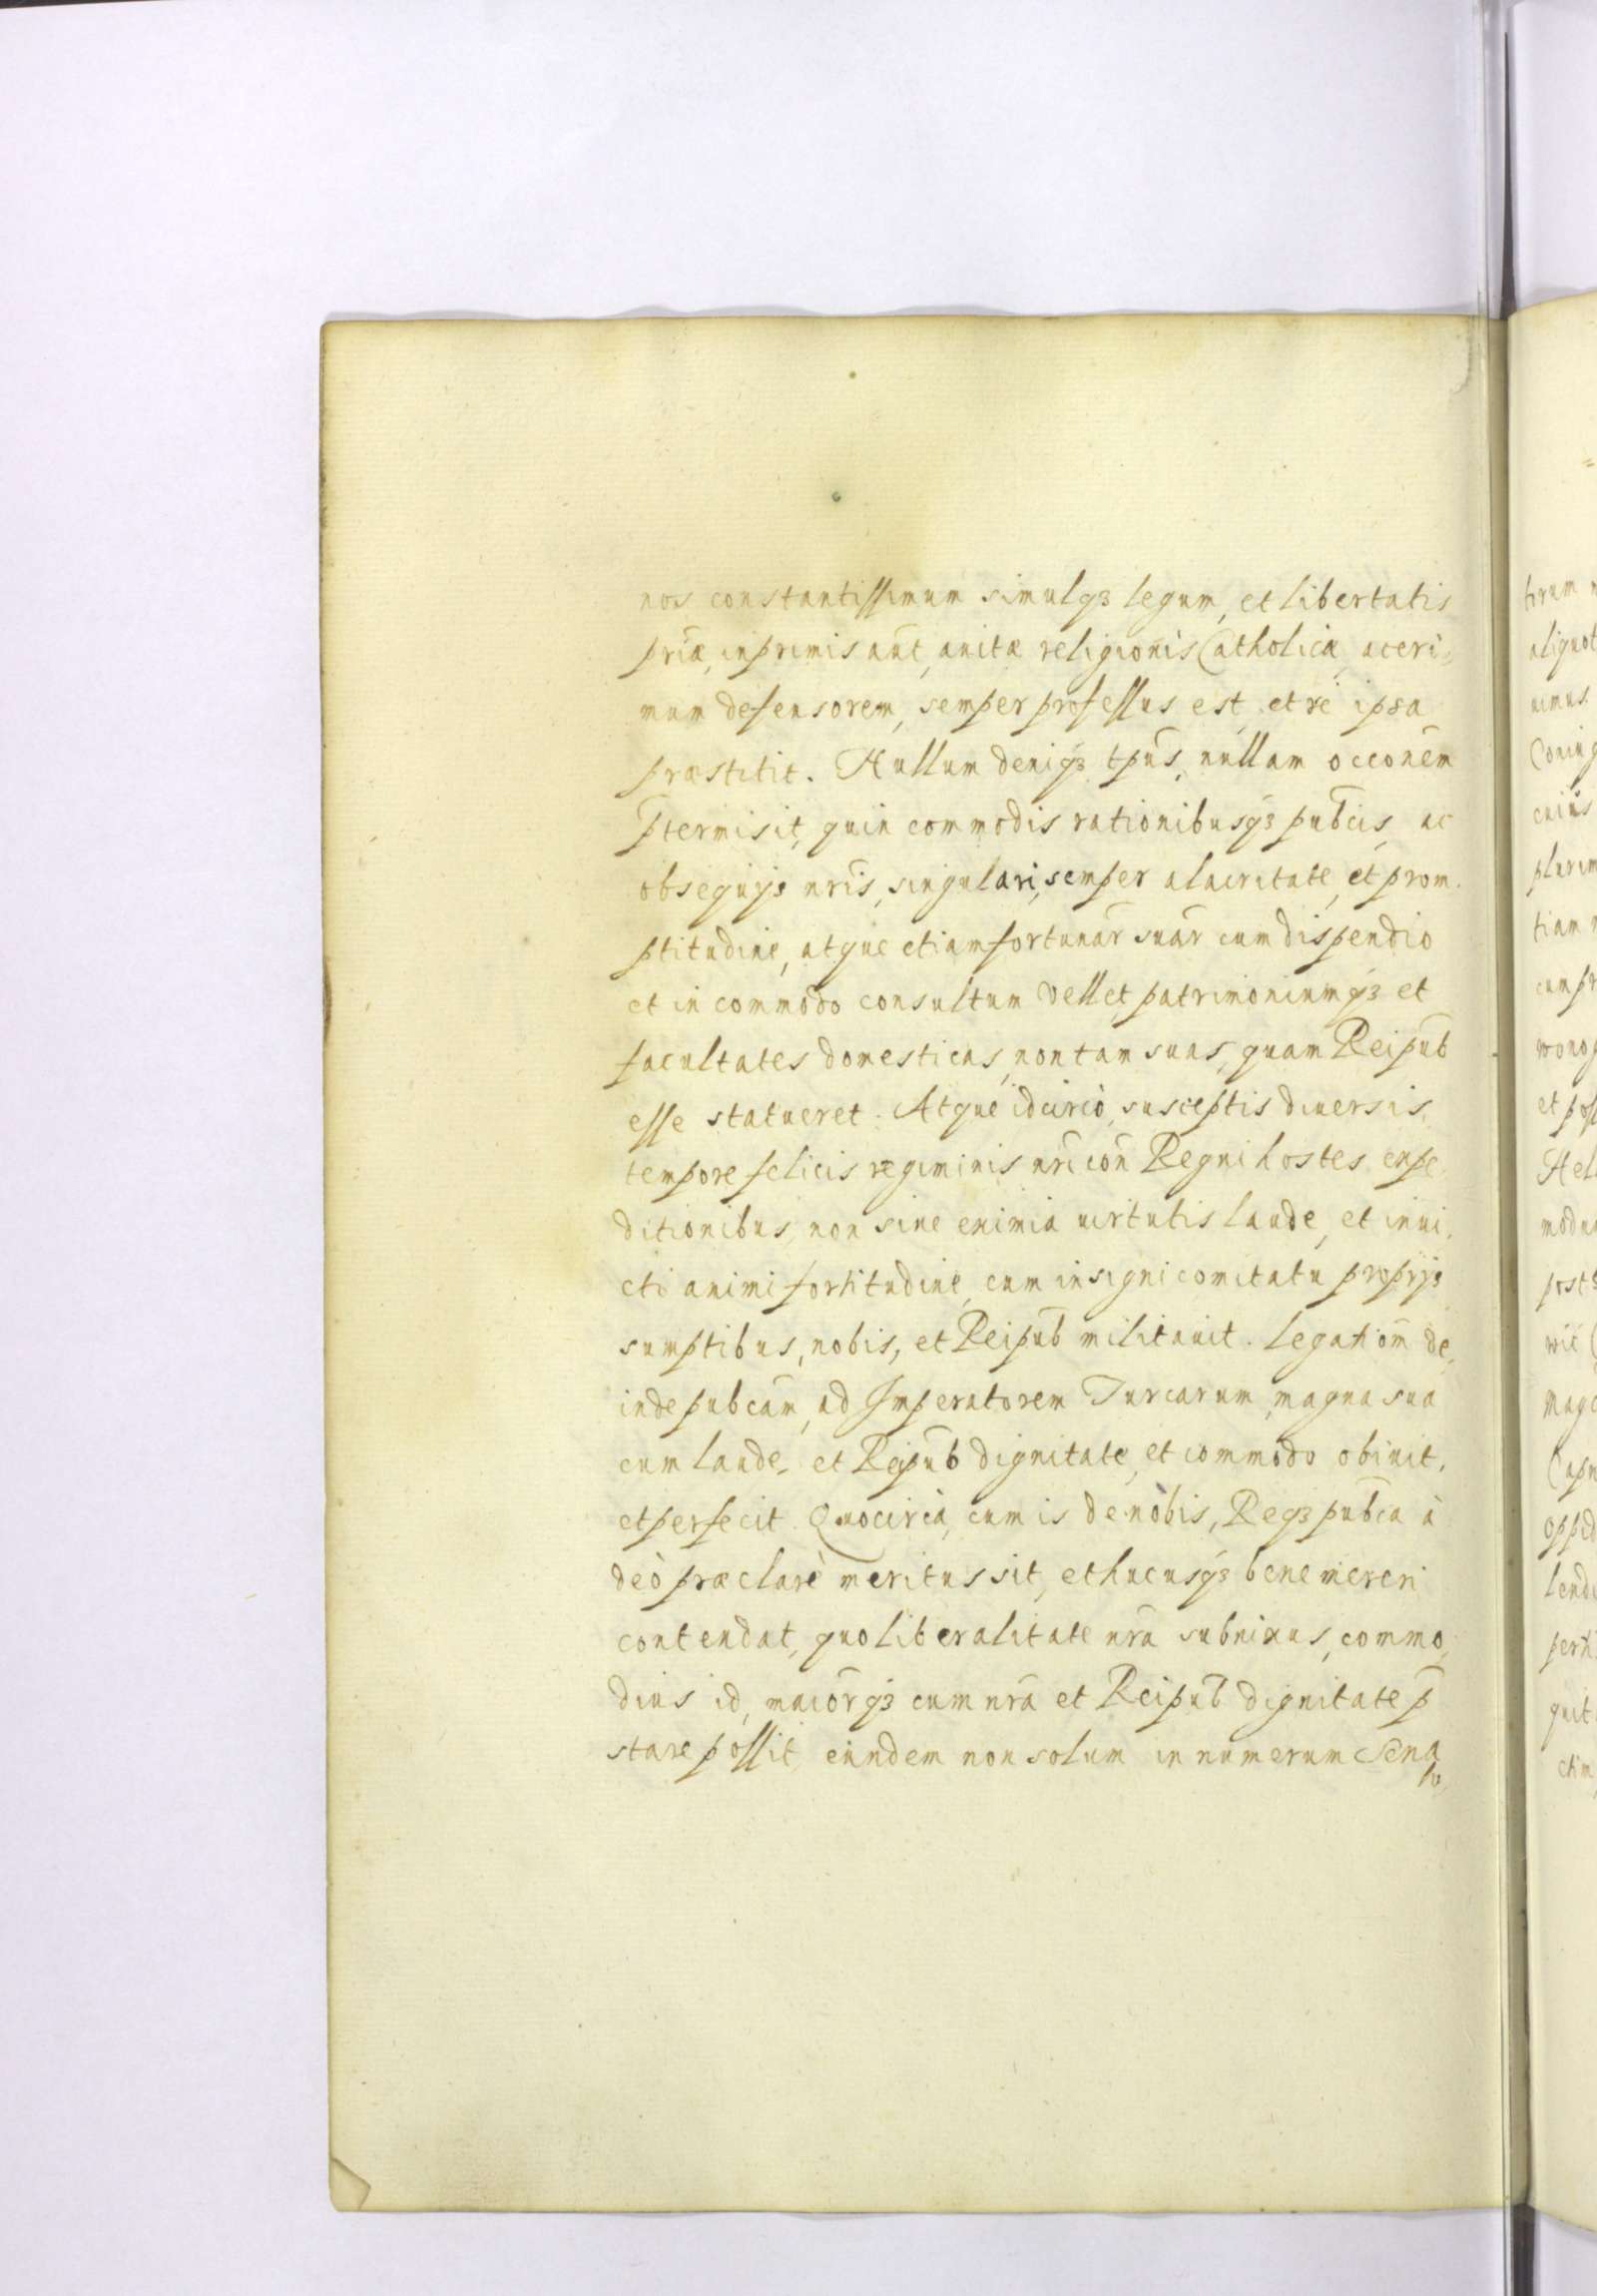 nos constantissimum simulqȝ legum, et libertatis
prīæ, inprimis aūt, auitæ religionis Catholicæ, aceri=
mum defensorem, semper professus est, et re ipsa
præstitit. Nullum deniqȝ tpūs, nullam occonēm
p̄termisit, quin commodis rationibusqȝ pub̄cis, ac
obsequijs nrīs, singulari, semper alacritate, et prom
ptitudine, atque etiam fortunār̄ suār̄ cum dispendio
et in commodo consultum vellet, patrimoniumqȝ et
facultates domesticas, non tam suas, quam Reipub̄
esse statueret. Atque idcircò, susceptis diuersis,
tempore felicis regiminis nrī con̄ Regni hostes, expe
ditionibus, non sine eximia uirtutis laude, et inui,
cti animi fortitudine, cum insigni comitatu proprijs
sumptibus, nobis, et Reipub̄ militauit. Legatiōm de,
inde pubcam̄, ad Imperatorem Turcarum, magna sua
cum laude, et Reipub̄ dignitate, et commodo obiuit,
et perfecit. Quocircà, cum is de nobis, Reqȝ pub̄ca à
deò præclarè meritus sit, et hucusqȝ bene mereri
contendat, quo liberalitate nrā subnixus, commo,
dius id, maiōr̄qȝ cum nrā et Reipub̄ dignitate p̄
stare possit, eundem non solum in numerum Sena
to,